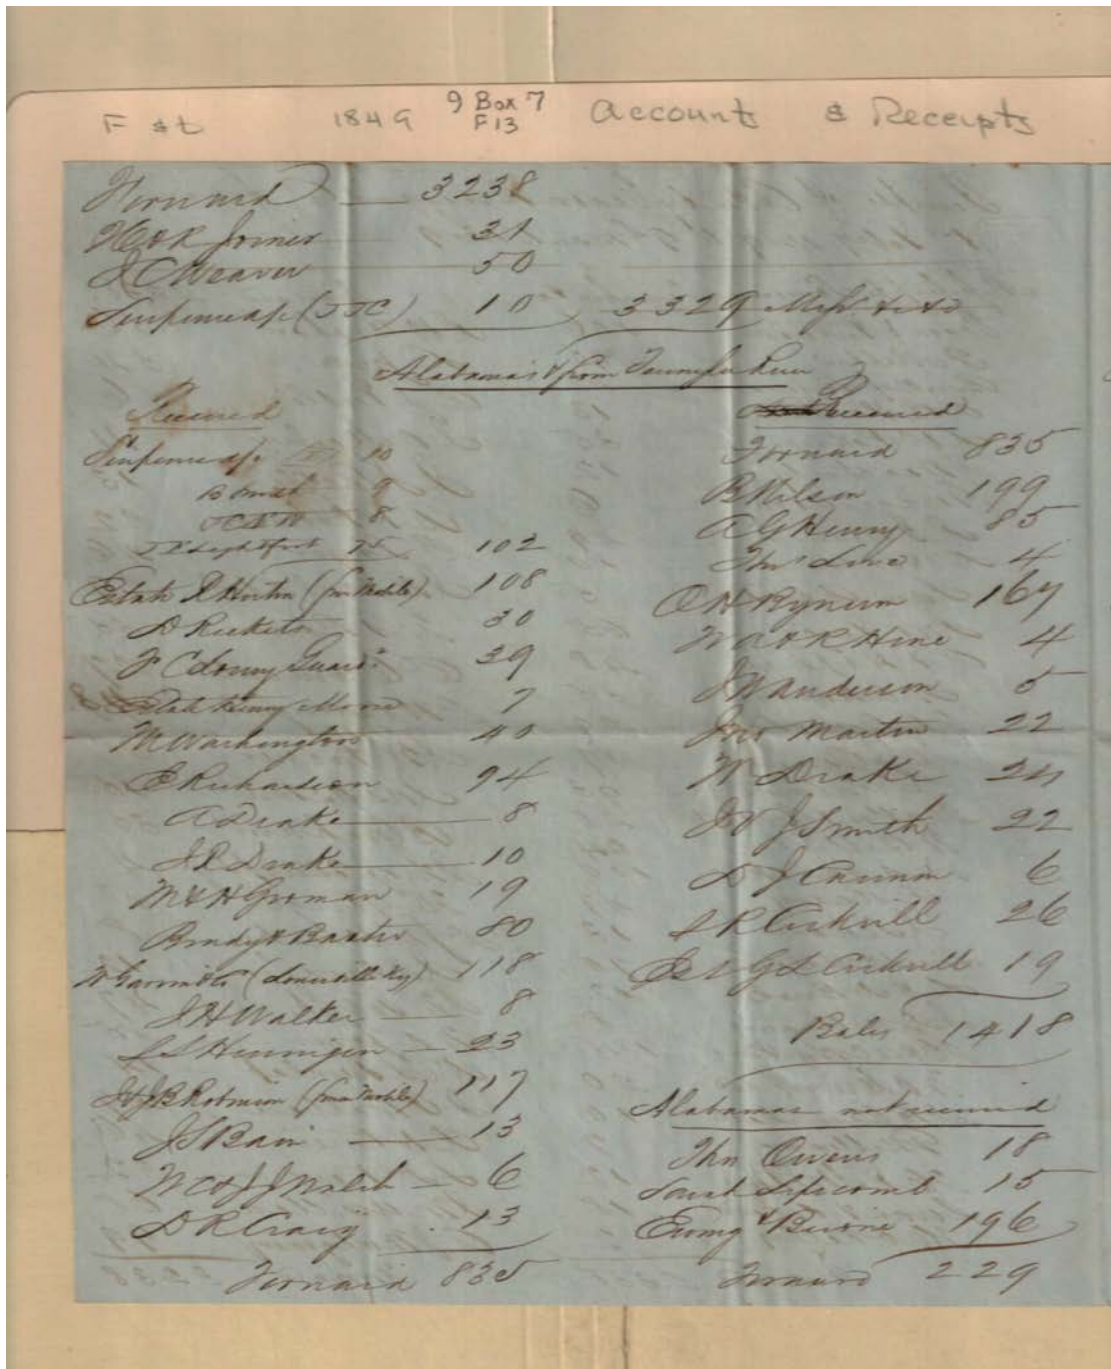 F & L 1849 9 Box 7 F13 Account & Receipts
Forward 3238
H & R Joiner 31
J C Weaver 50
Suspense a/c (JJC) 10 3329
Alabamas & from Tennessee River
Received
Suspense a/c 10
9
8
J F Lightfoot 75 102
Estate R Horton (from Mobile) 108
D Ricketts 30
39
Estate Henry Moore 7
M Washington 40
E Richardson 94
A Drake 8
J P Drake 10
M & H Groman 19
Brady & Baxter 80
W Garvin & Co (Louisville Ky) 118
J H Walker 8
L S Hennigen 23
J & J B Robinson (from Mobile) 117
J S Bain 13
W C & J J Malih 6
D R Craig 13
Forward 835
Received
Forward 835
B Wilson 199
A G Henry 85
Thos Love 4
O H Bynum 164
W A & R Hine 4
J W Anderson 5
Jno Martin 22
W Drake 24
J & J Smith 22
D J Cannon 6
26
19
Bales 1418
Alabamas not received
Thn Owens 18
Lipscomb 15
Ewing & Burne 196
Forward 229